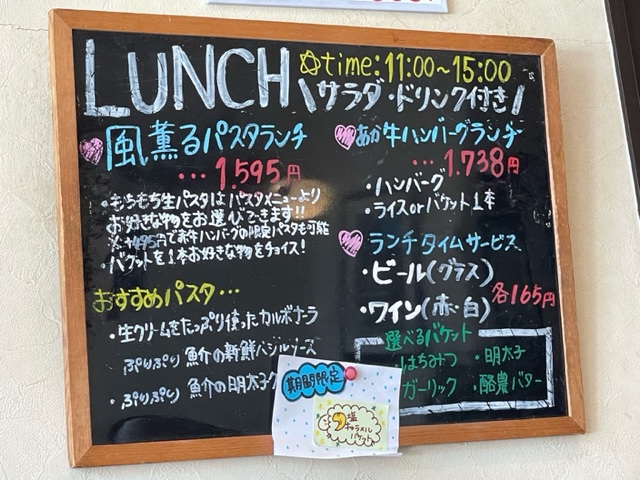 LUNCH
☆time:11:00~15:00
\サラダ・ドリンク付き/
風薫るパスタランチ
…1,595円
・もちもち生パスタはパスタメニューより
お好きな物をお選びできます!!
※+495円で赤牛ハンバーグの限定パスタも可能
・バケットを1本お好きな物をチョイス!
おすすめパスタ…
・生クリームをたっぷり使ったカルボナーラ
ぷりぷり魚介の新鮮バジルソース
・ぷりぷり魚介の明太子ク
あか牛ハンバーグランチ
…1,738円
・ハンバーグ
・ライスorバケット1本
ランチタイムサービス
・ビール(グラス)
・ワイン(赤・白)
各165円
選べるバケット
はちみつ
・明太子
ガーリック
・酪農バター
期間限定
塩
キャラメル
バケット